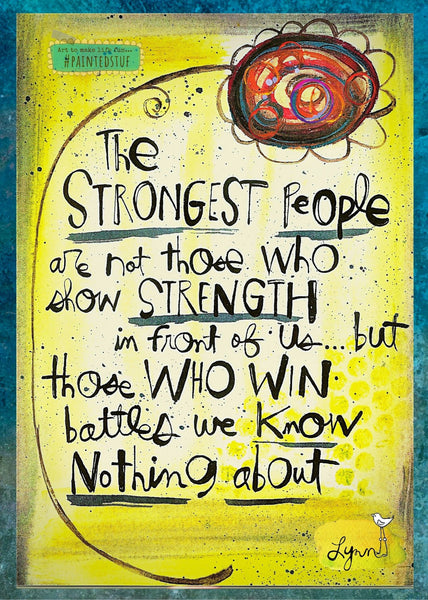 Art to make life fun...
#PAINTEDSTUF
The
STRONGEST PEOPLE
are not those WHO
show STRENGTH
in front of us...but
those WHO WIN
battles we KNOW
Nothing about
Lynn